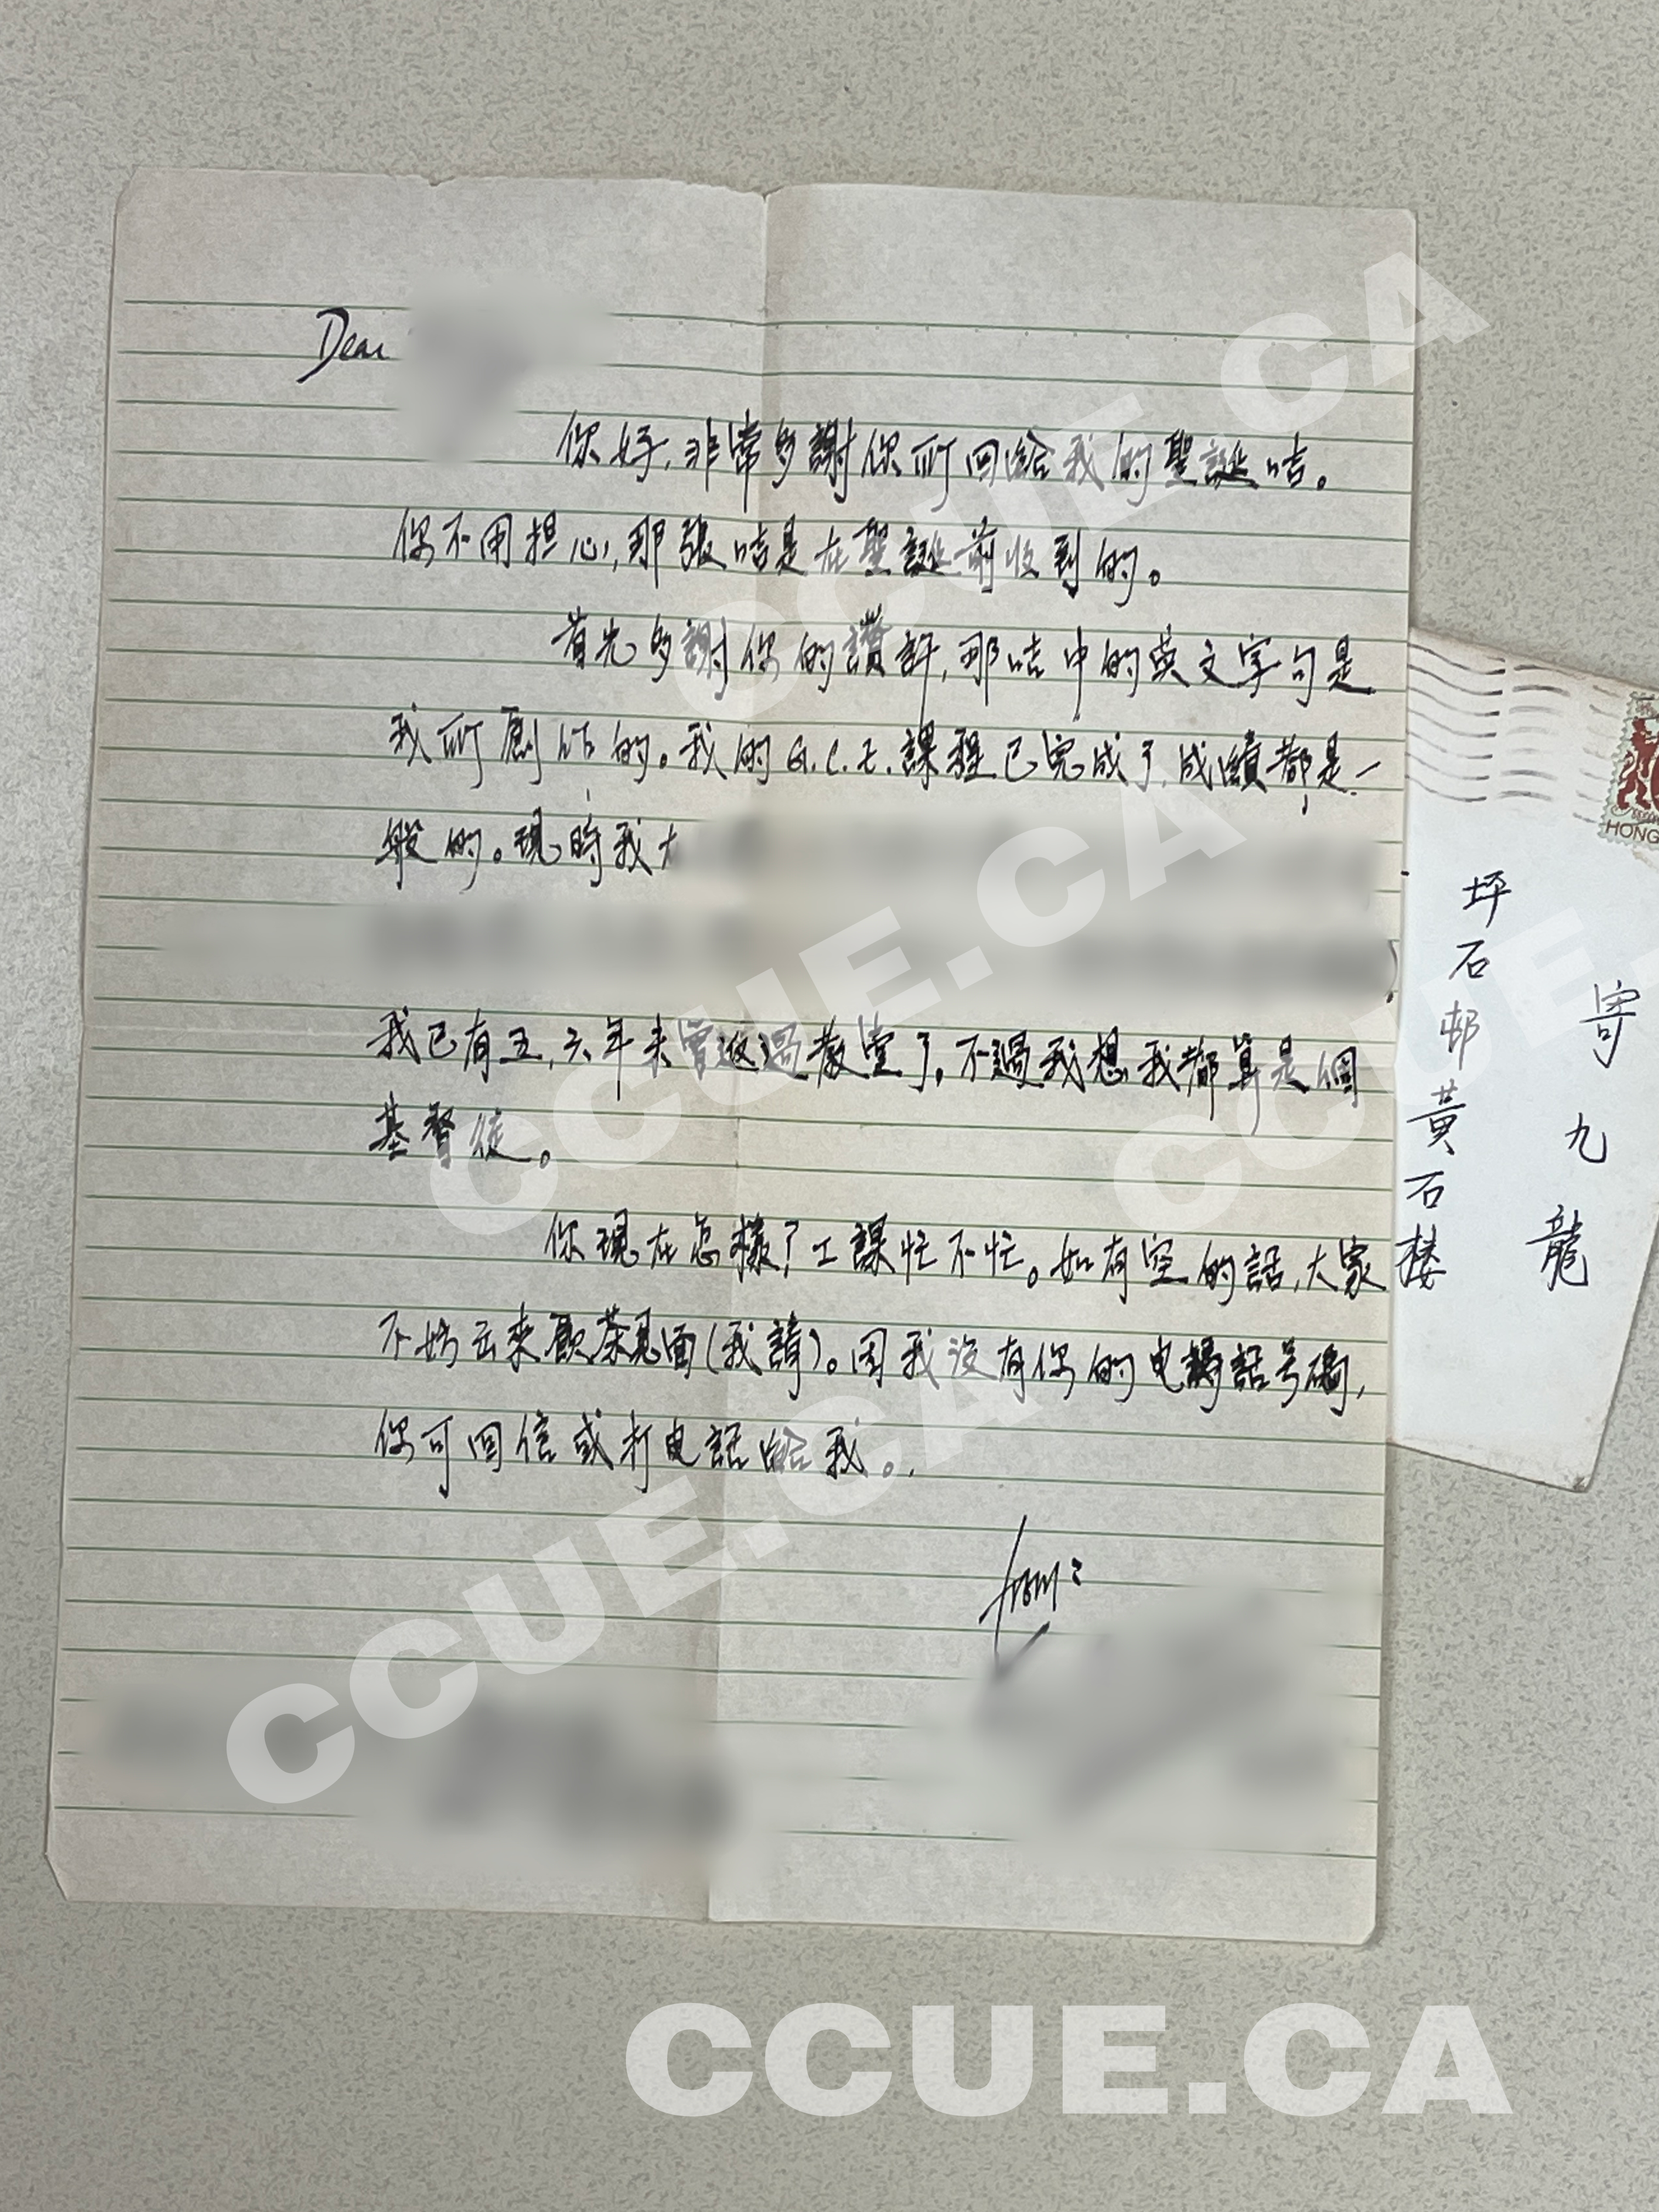 Dear
你好,非常多謝你所回給我的聖誕咭。
你不用担心,那張咭是在聖誕前收到的。
首先多謝你的讚許,那咭中的英文字句是
我所創作的。我的G.C.E.課程已完成了,成績都是一
般的。現時我
我已有五,六年未曾返過教堂了。不過我想我都算是個
基督徒。
你現在怎樣?工課忙不忙。如有空的話,大家
不妨出來飲茶見面(我請)。因我沒有你的电話号碼,
你可回信或打电話給我。
from:
寄九龍
坪石邨黃石楼
HONG
CCUE.CA
CCUE.CA
CCUE.CA
CCUE.CA